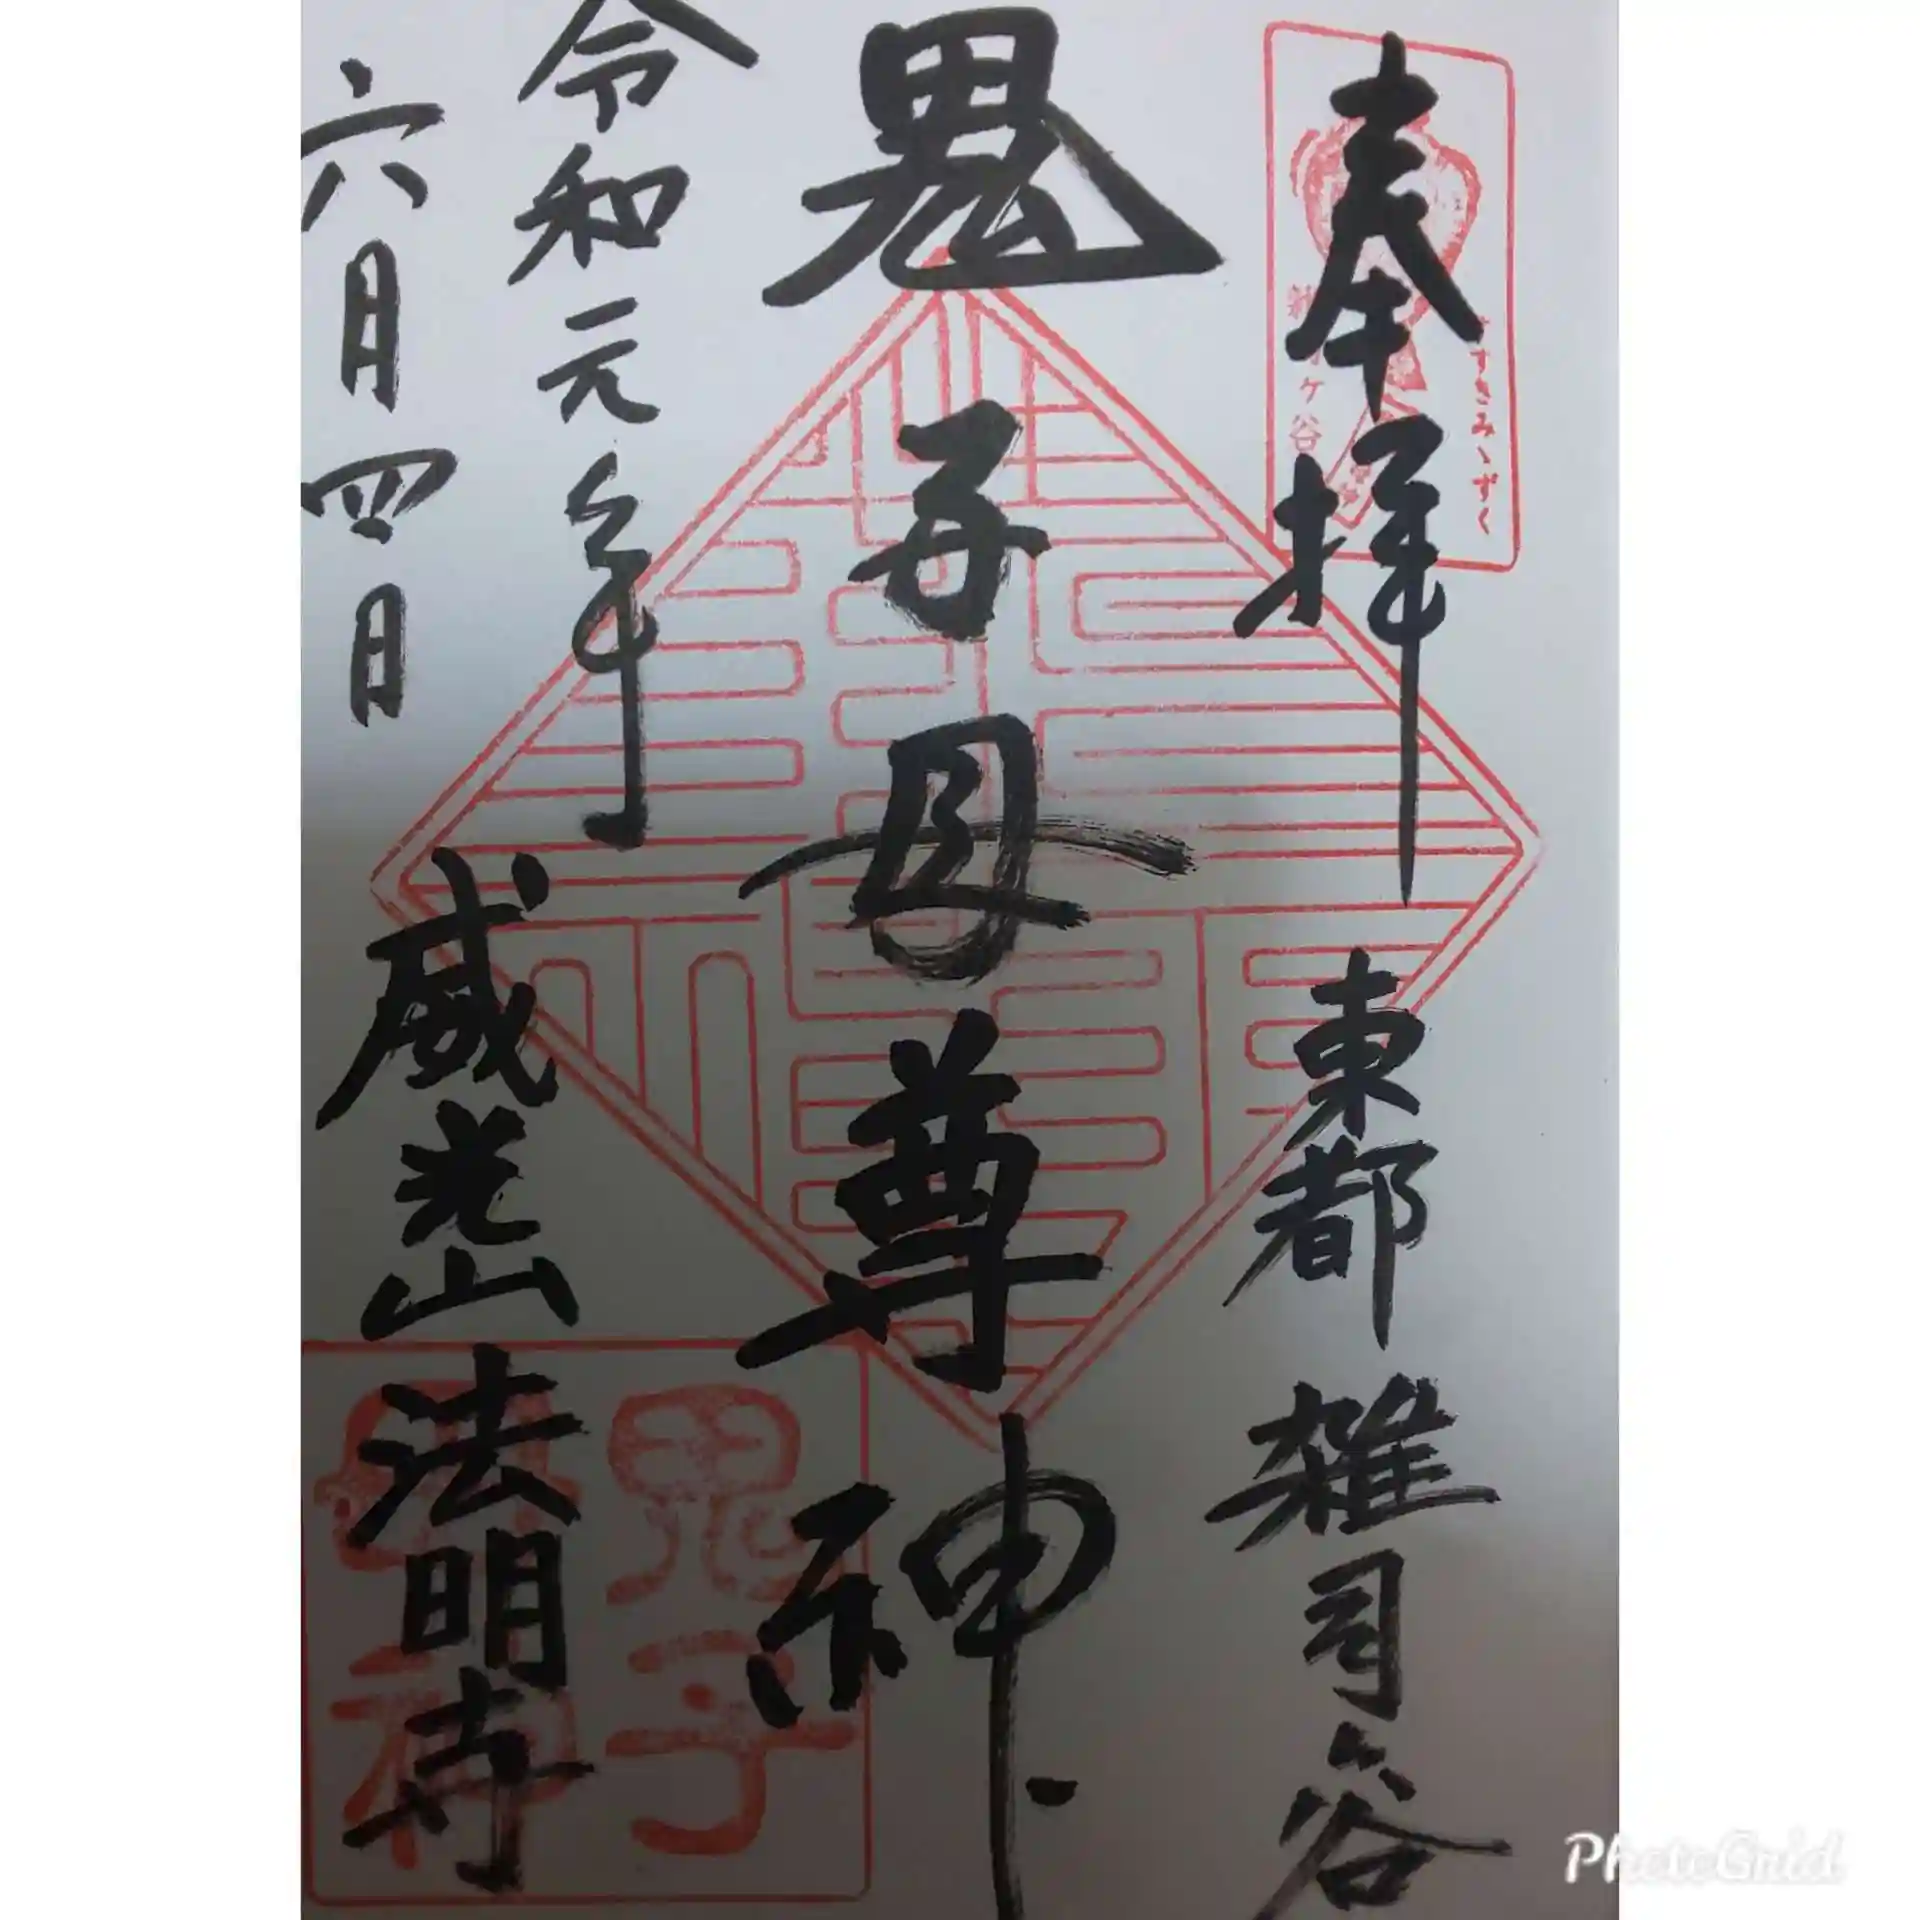 奉拝
東都
雑司谷
鬼子母尊神
令和元年
六月四日
威光山
法明寺
すすきみゝずく
ヶ谷
鬼子
母神
PhotoGrid